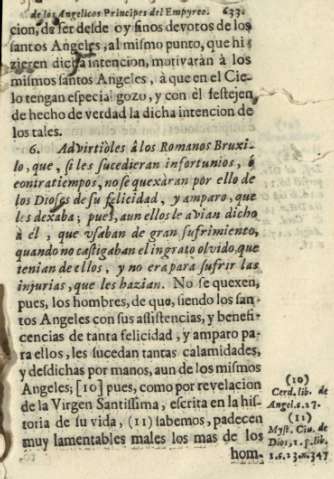 de los Angelicos Principes del Empyreo. 633.
cion, de ser desde oy finos devotos de los
santos Angeles, al mismo punto, que hi
zieren dicha intencion, motivaràn à los
mismos santos Angeles, à que en el Cie-
lo tengan especial gozo, y con èl festejen
de hecho de verdad la dicha intencion de
los tales.
6. Advirtiòles à los Romanos Bruxi-
lo, que, si les sucedieran infortunios, ò
contratiempos, no se quexàran por ello de
los Dioses de su felicidad, y amparo, que
les dexaba; pues, aun ellos le avian dicho
à èl, que vsaban de gran sufrimiento,
quando no castigaban el ingrato olvido, que
tenian de ellos, y no era para sufrir las
injurias, que les hazian. No se quexen,
pues, los hombres, de que, siendo los san-
tos Angeles con sus assistencias, y benefi-
cencias de tanta felicidad, y amparo pa-
ra ellos, les sucedan tantas calamidades,
y desdichas por manos, aun de los mismos
Angeles; [10] pues, como por revelacion
de la Virgen Santissima, escrita en la his-
toria de su vida, (11) sabemos, padecen
muy lamentables males los mas de los
hom-
(10)
Cerd. lib. de
Angel. c. 27.
(11)
Myst. Ciu. de
Dios, 1. p. lib.
1. c. 23. n. 347